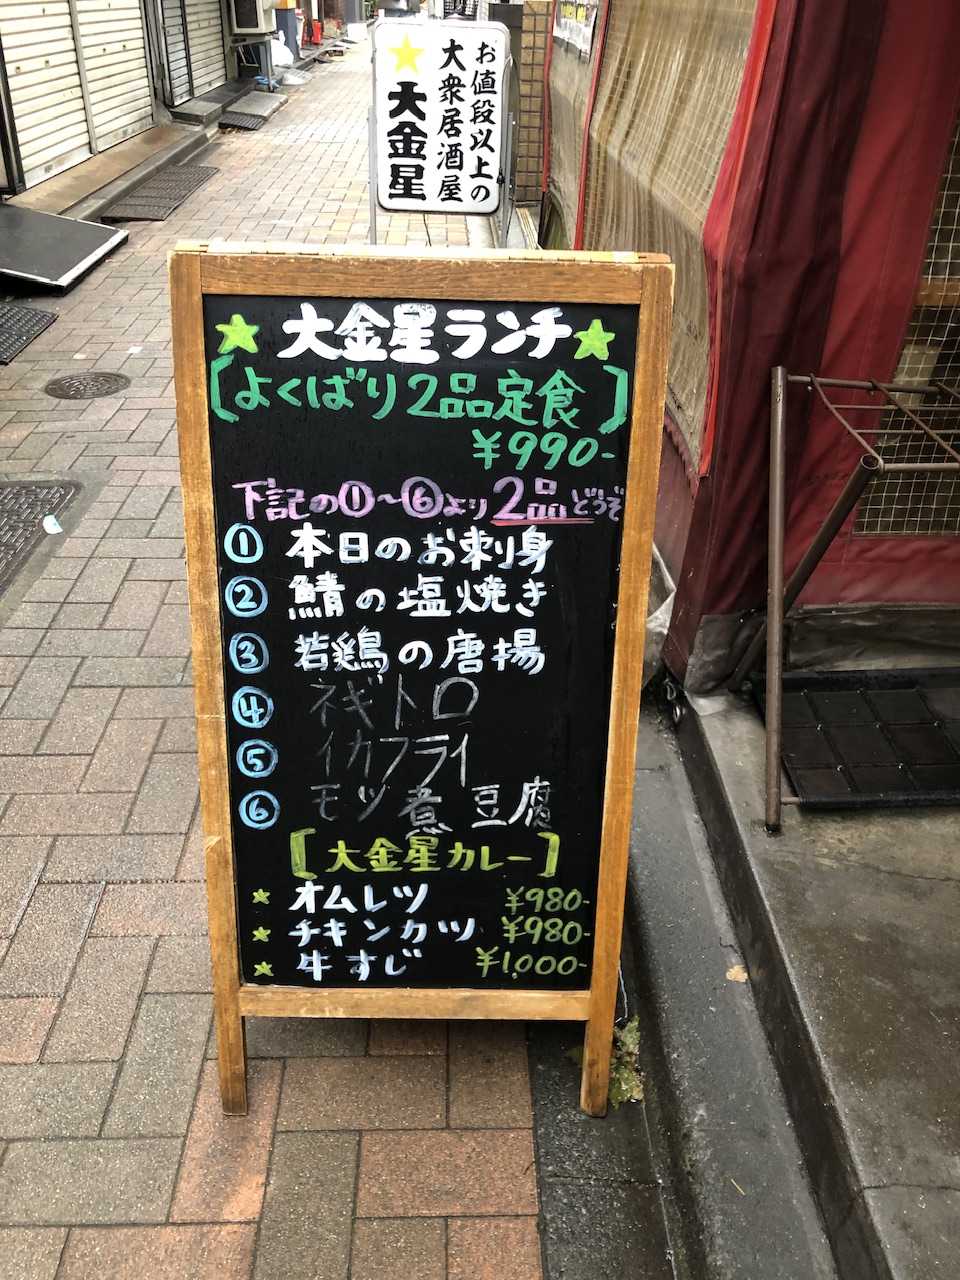 お値段以上の
大衆居酒屋
★大金星
★大金星ランチ★
[よくばり2品定食]
¥990-
下記の①〜⑥より2品どうぞ
① 本日のお刺身
② 鯖の塩焼き
③ 若鶏の唐揚
④ ネギトロ
⑤ イカフライ
⑥ モツ煮豆腐
[大金星カレー]
★ オムレツ ¥980-
★ チキンカツ ¥980-
★ 牛すじ ¥1,000-